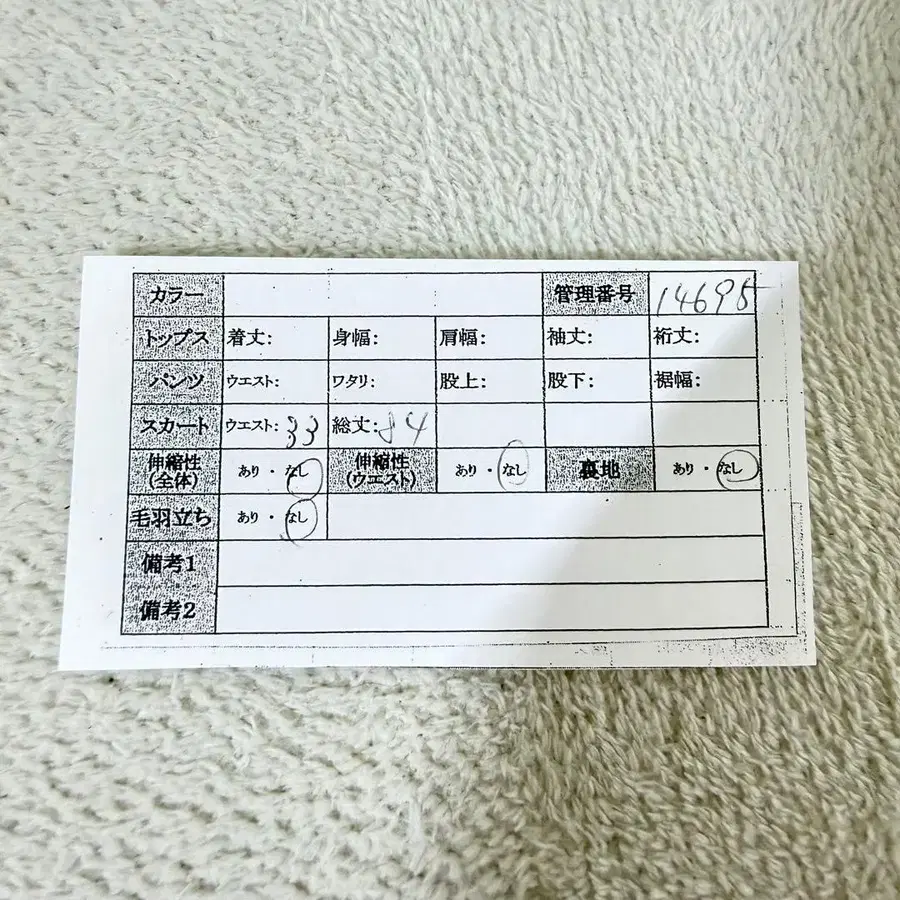 カラー 管理番号 14695
トップス 着丈: 身幅: 肩幅: 袖丈: 裄丈:
パンツ ウエスト: ワタリ: 股上: 股下: 裾幅:
スカート ウエスト: 33 総丈: 84
伸縮性(全体) あり・なし 伸縮性(ウエスト) あり・なし 裏地 あり・なし
毛羽立ち あり・なし
備考1
備考2